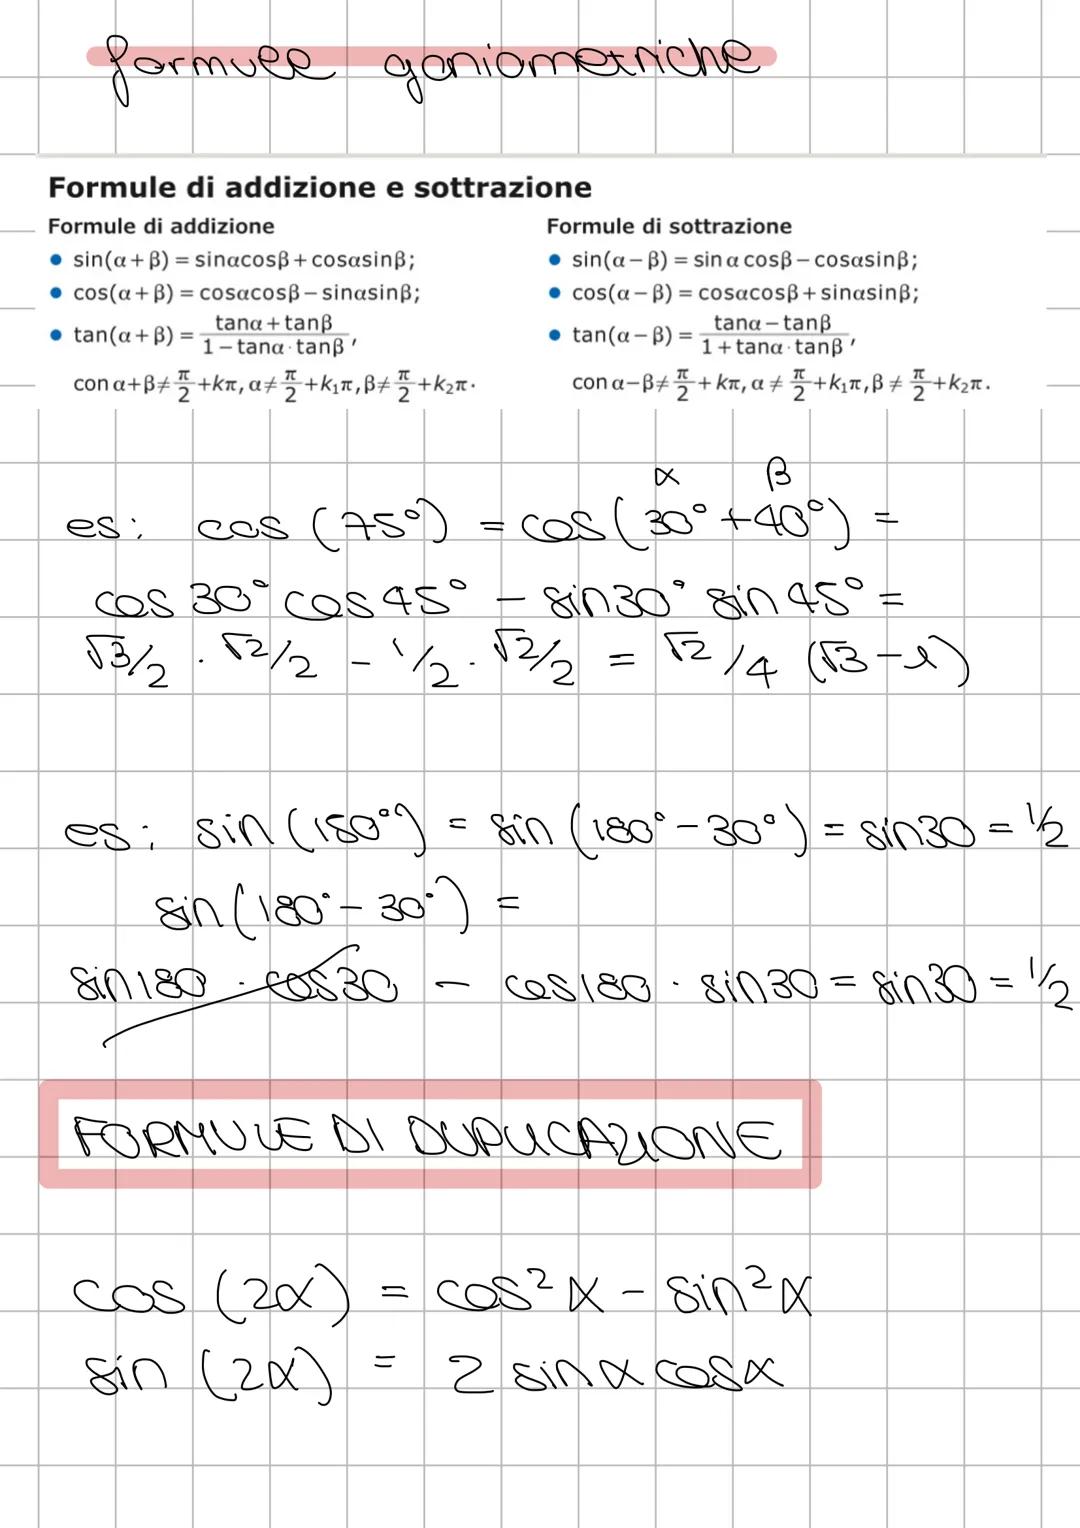 formule goniometriche
Formule di addizione e sottrazione
Formule di addizione
• sin(α+β) = sinαcosβ+cosαsinβ;
• cos(α+β) = cosαcosβ−sinαsinβ;
• tan(α+β) = (tanα+tanβ)/(1−tanα·tanβ),
con α+β≠π/2+kπ, α≠π/2+k₁π, β≠π/2+k₂π.
Formule di sottrazione
• sin(α−β) = sin α cosβ−cosαsinβ;
• cos(α−β) = cosαcosβ+sinαsinβ;
• tan(α−β) = (tanα−tanβ)/(1+tanα·tanβ),
con α−β≠π/2+kπ, α≠π/2+k₁π, β≠π/2+k₂π.
α β
es: cos (75°) = cos (30°+40°) =
cos 30° cos 45° − sin30° sin 45° =
√3/2 · √2/2 − 1/2 · √2/2 = √2/4 (√3−1)
es: sin (150°) = sin (180°−30°) = sin30 = 1/2
sin (180°−30°) =
sin180 · cos30 − cos180 · sin30 = sin30 = 1/2
FORMULE DI DUPLICAZIONE
cos (2α) = cos²α − sin²α
sin (2α) = 2 sinα cosα